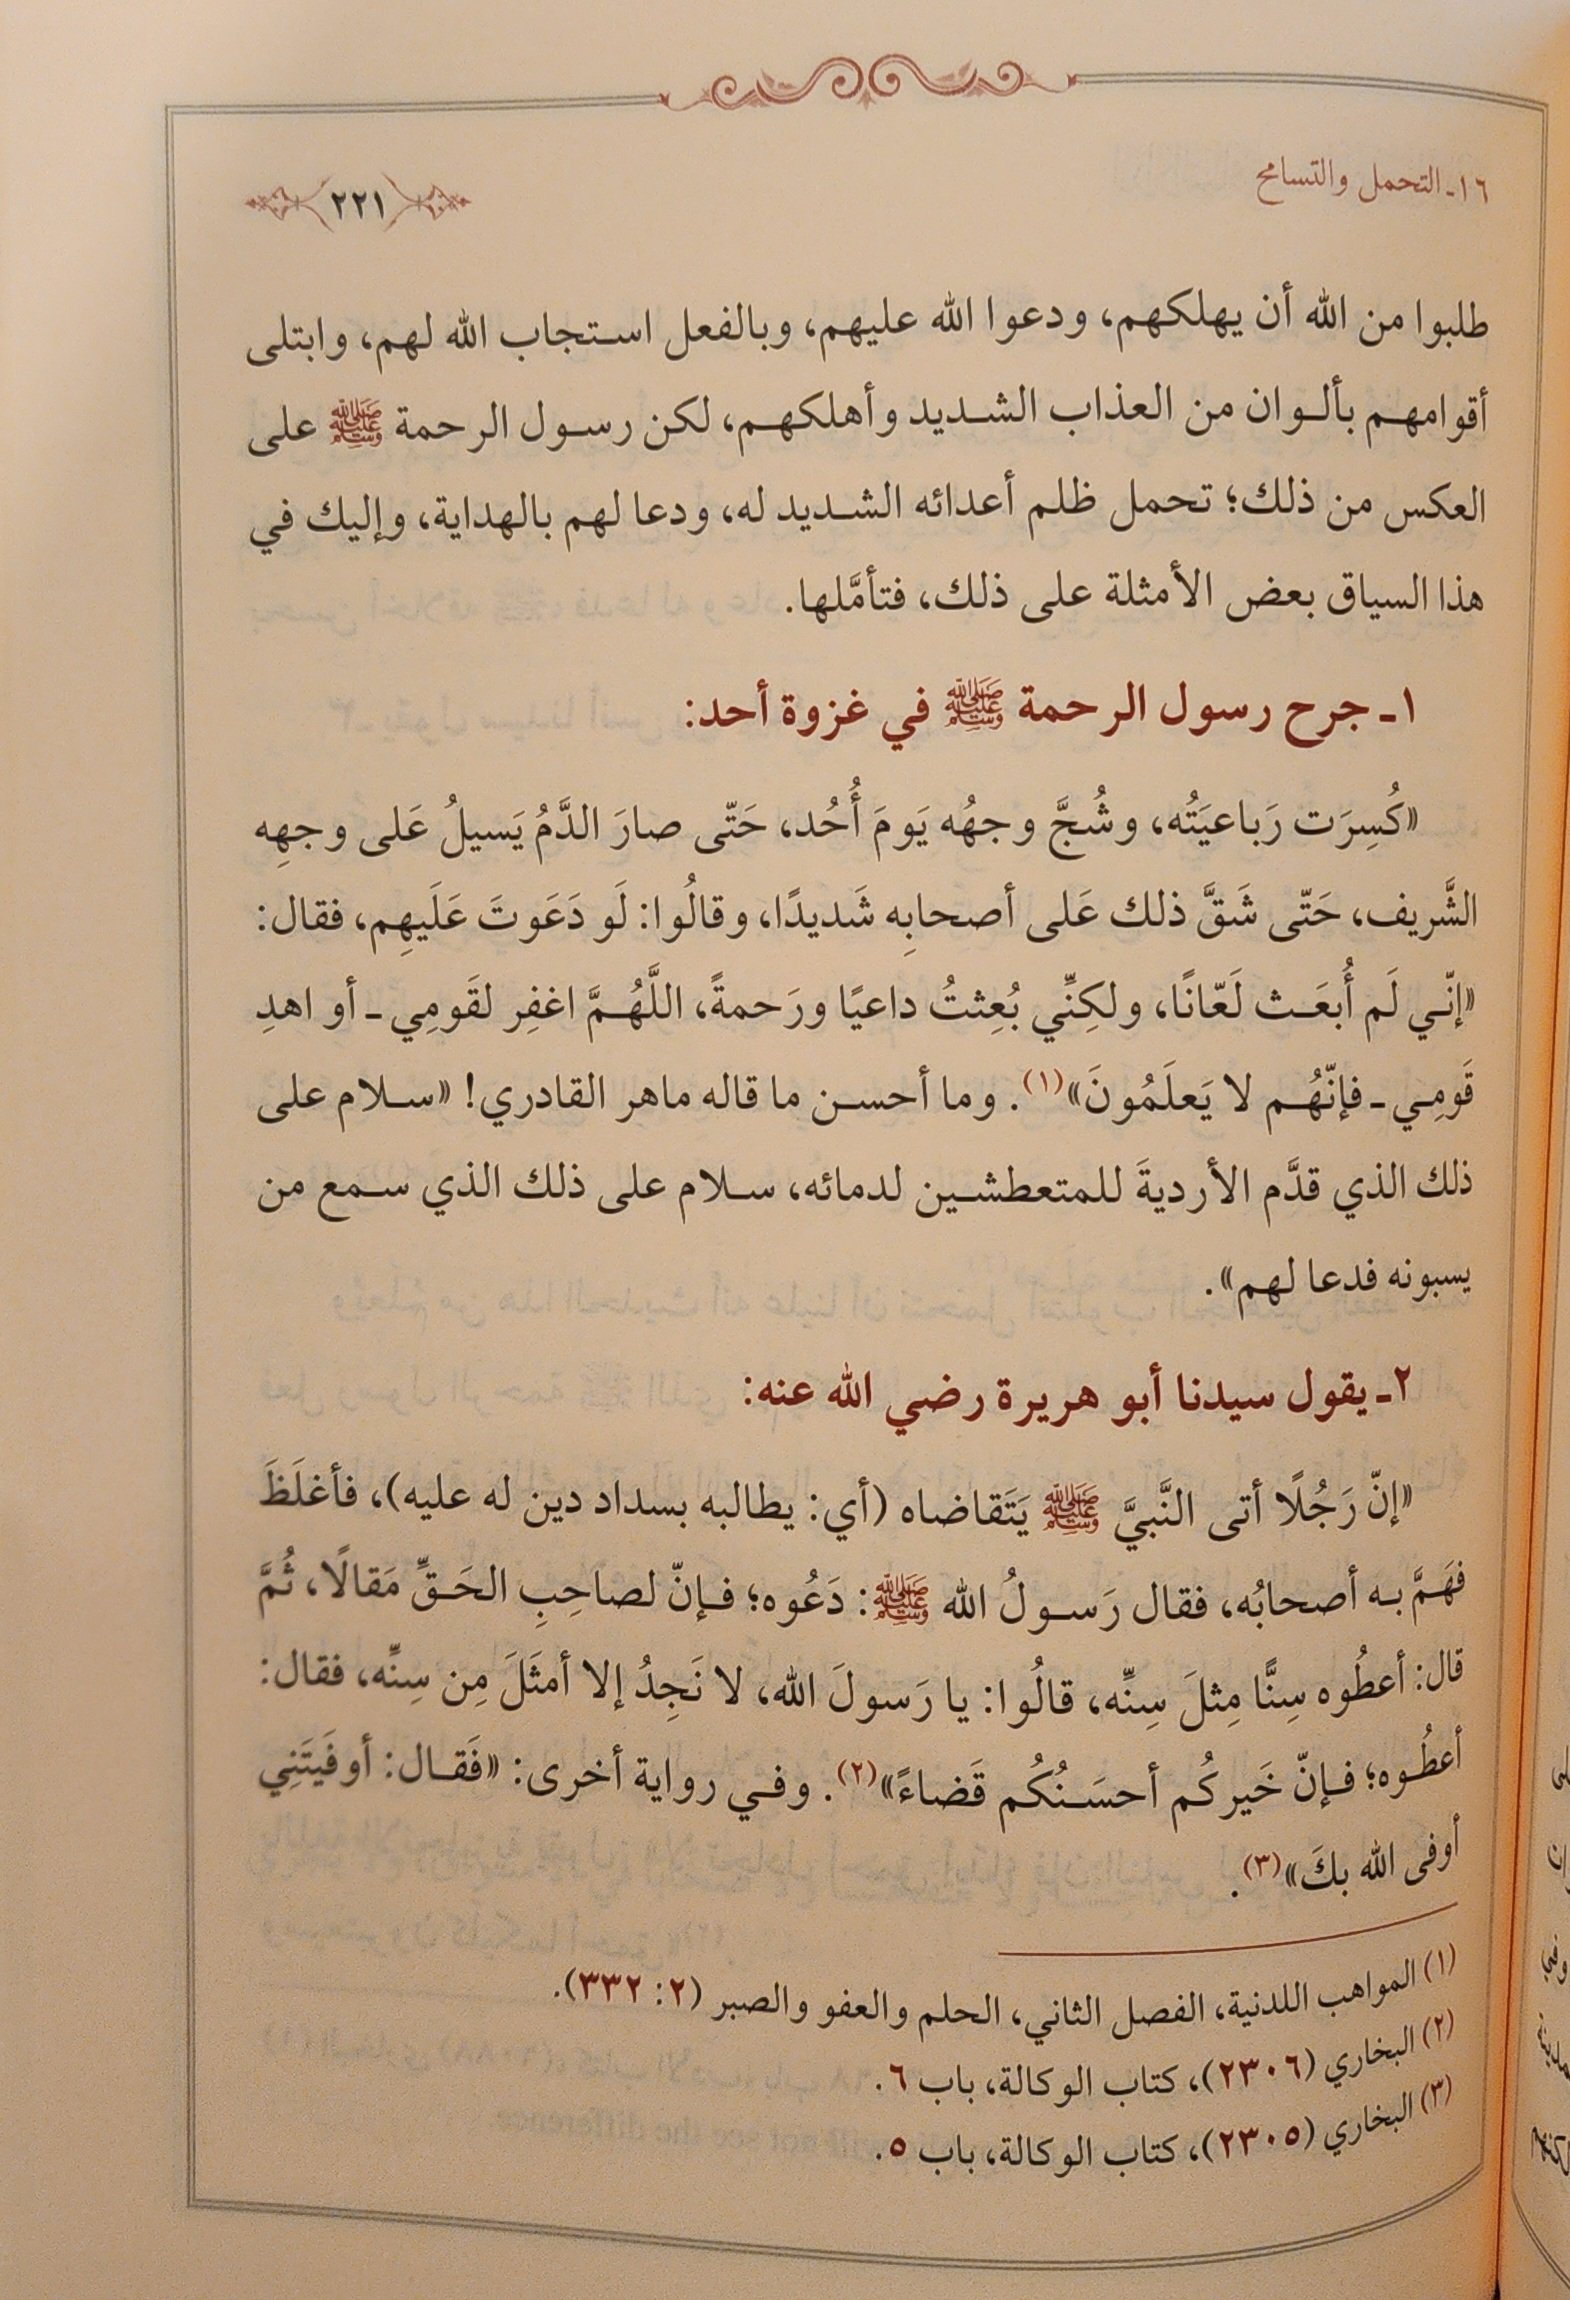 ١٦ـ التحمل والتسامح
٢٢١
طلبوا من الله أن يهلكهم، ودعوا الله عليهم، وبالفعل استجاب الله لهم، وابتلى
أقوامهم بألوان من العذاب الشديد وأهلكهم، لكن رسول الرحمة ﷺ على
العكس من ذلك؛ تحمل ظلم أعدائه الشديد له، ودعا لهم بالهداية، وإليك في
هذا السياق بعض الأمثلة على ذلك، فتأمَّلها.
١ـ جرح رسول الرحمة ﷺ في غزوة أحد:
«كُسِرَت رَباعيَتُه، وشُجَّ وجهُه يَومَ أُحُد، حَتّى صارَ الدَّمُ يَسيلُ عَلى وجهِه
الشَّريف، حَتّى شَقَّ ذلك عَلى أصحابِه شَديدًا، وقالُوا: لَو دَعَوتَ عَلَيهِم، فقال:
«إنّي لَم أُبعَث لَعّانًا، ولكِنِّي بُعِثتُ داعيًا ورَحمةً، اللَّهُمَّ اغفِر لقَومِي ـ أو اهدِ
قَومِي ـ فإنّهُم لا يَعلَمُونَ»(١). وما أحسن ما قاله ماهر القادري! «سلام على
ذلك الذي قدَّم الأرديةَ للمتعطشين لدمائه، سلام على ذلك الذي سمع من
يسبونه فدعا لهم».
٢ـ يقول سيدنا أبو هريرة رضي الله عنه:
«إنّ رَجُلًا أتى النَّبيَّ ﷺ يَتَقاضاه (أي: يطالبه بسداد دين له عليه)، فأغلَظَ
فهَمَّ به أصحابُه، فقال رَسولُ الله ﷺ: دَعُوه؛ فإنّ لصاحِبِ الحَقِّ مَقالًا، ثُمَّ
قال: أعطُوه سِنًّا مِثلَ سِنِّه، قالُوا: يا رَسولَ الله، لا نَجِدُ إلا أمثَلَ مِن سِنِّه، فقال:
أعطُوه؛ فإنّ خَيركُم أحسَنُكُم قَضاءً»(٢). وفي رواية أخرى: «فَقال: أوفَيتَنِي
أوفى الله بكَ»(٣).
(١) المواهب اللدنية، الفصل الثاني، الحلم والعفو والصبر (٢: ٣٣٢).
(٢) البخاري (٢٣٠٦)، كتاب الوكالة، باب ٦.
(٣) البخاري (٢٣٠٥)، كتاب الوكالة، باب ٥.